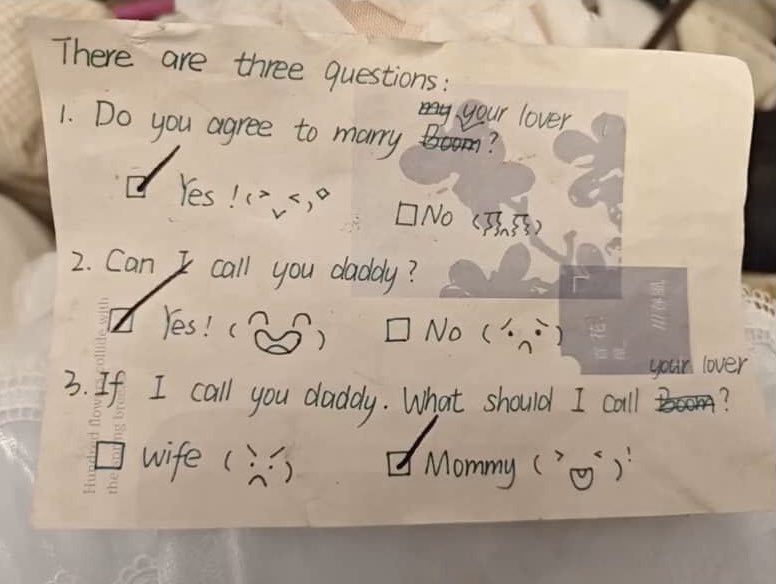 There are three questions:
my your lover
1. Do you agree to marry Boom?
Yes! (>ᵥ<)° No
2. Can I call you daddy?
Yes! No
3. If I call you daddy. What should I call Boom?
your lover
wife Mommy !
Hundred flowers collide with
the spring breeze
百花
春風